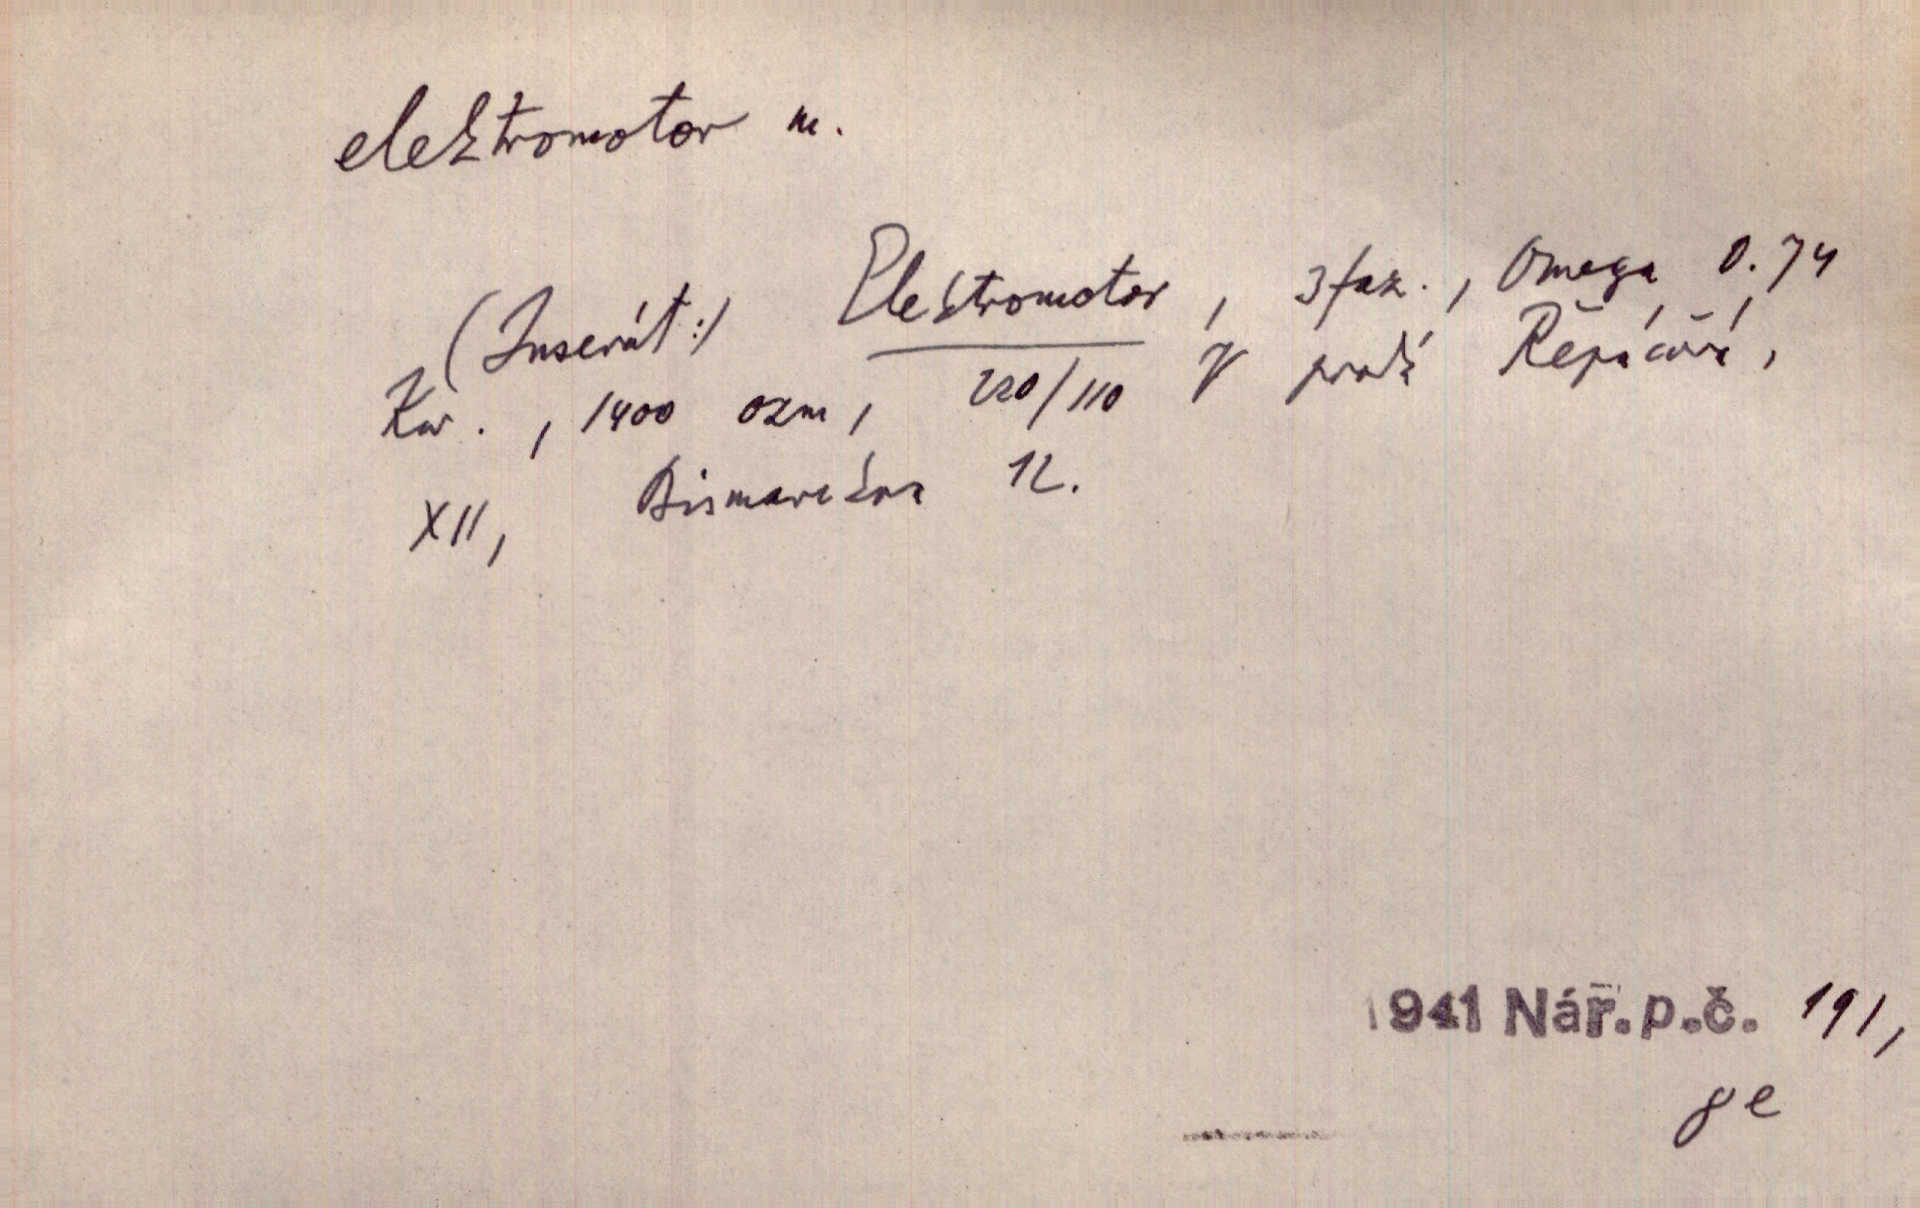 elektromotor m.
(Inserát:) Elektromotor, 3 faz., Omega 0.74
Kw., 1400 ozm, 220/110 V prodá Řepáčová,
XII, Bismarckova 12.
1941 Nář.p.č. 191,
ge